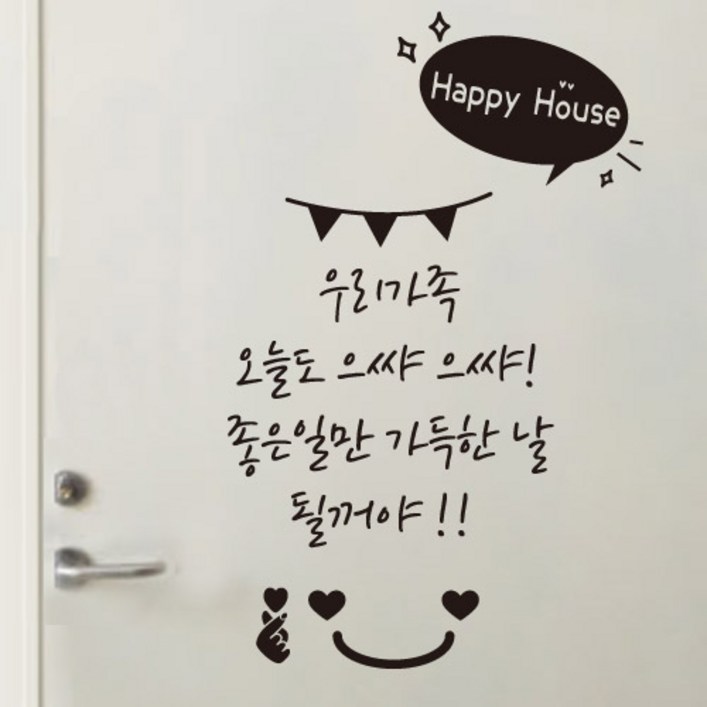 Happy House
우리가족
오늘도 으쌰 으쌰!
좋은일만 가득한 날
될꺼야!!